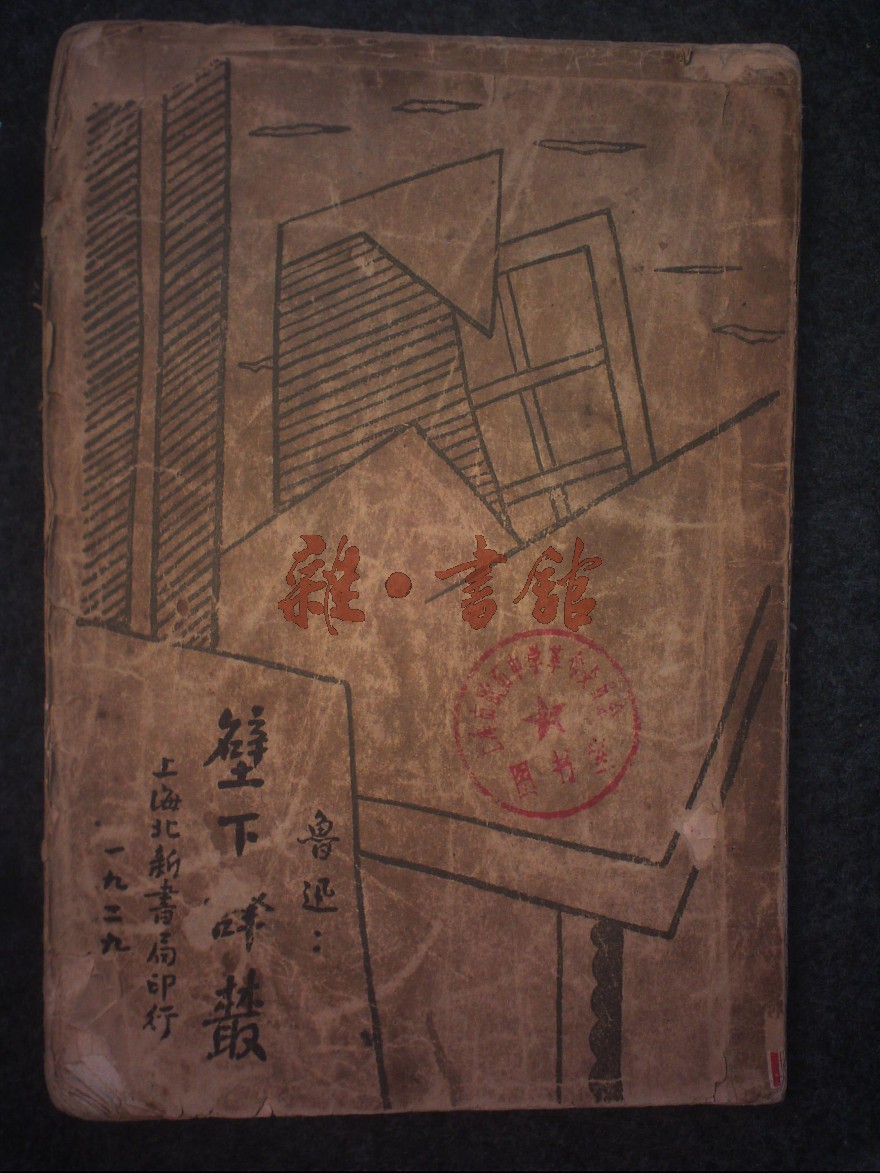 雜·書館
魯迅：
壁下譯叢
上海北新書局印行
一九二九
图书馆